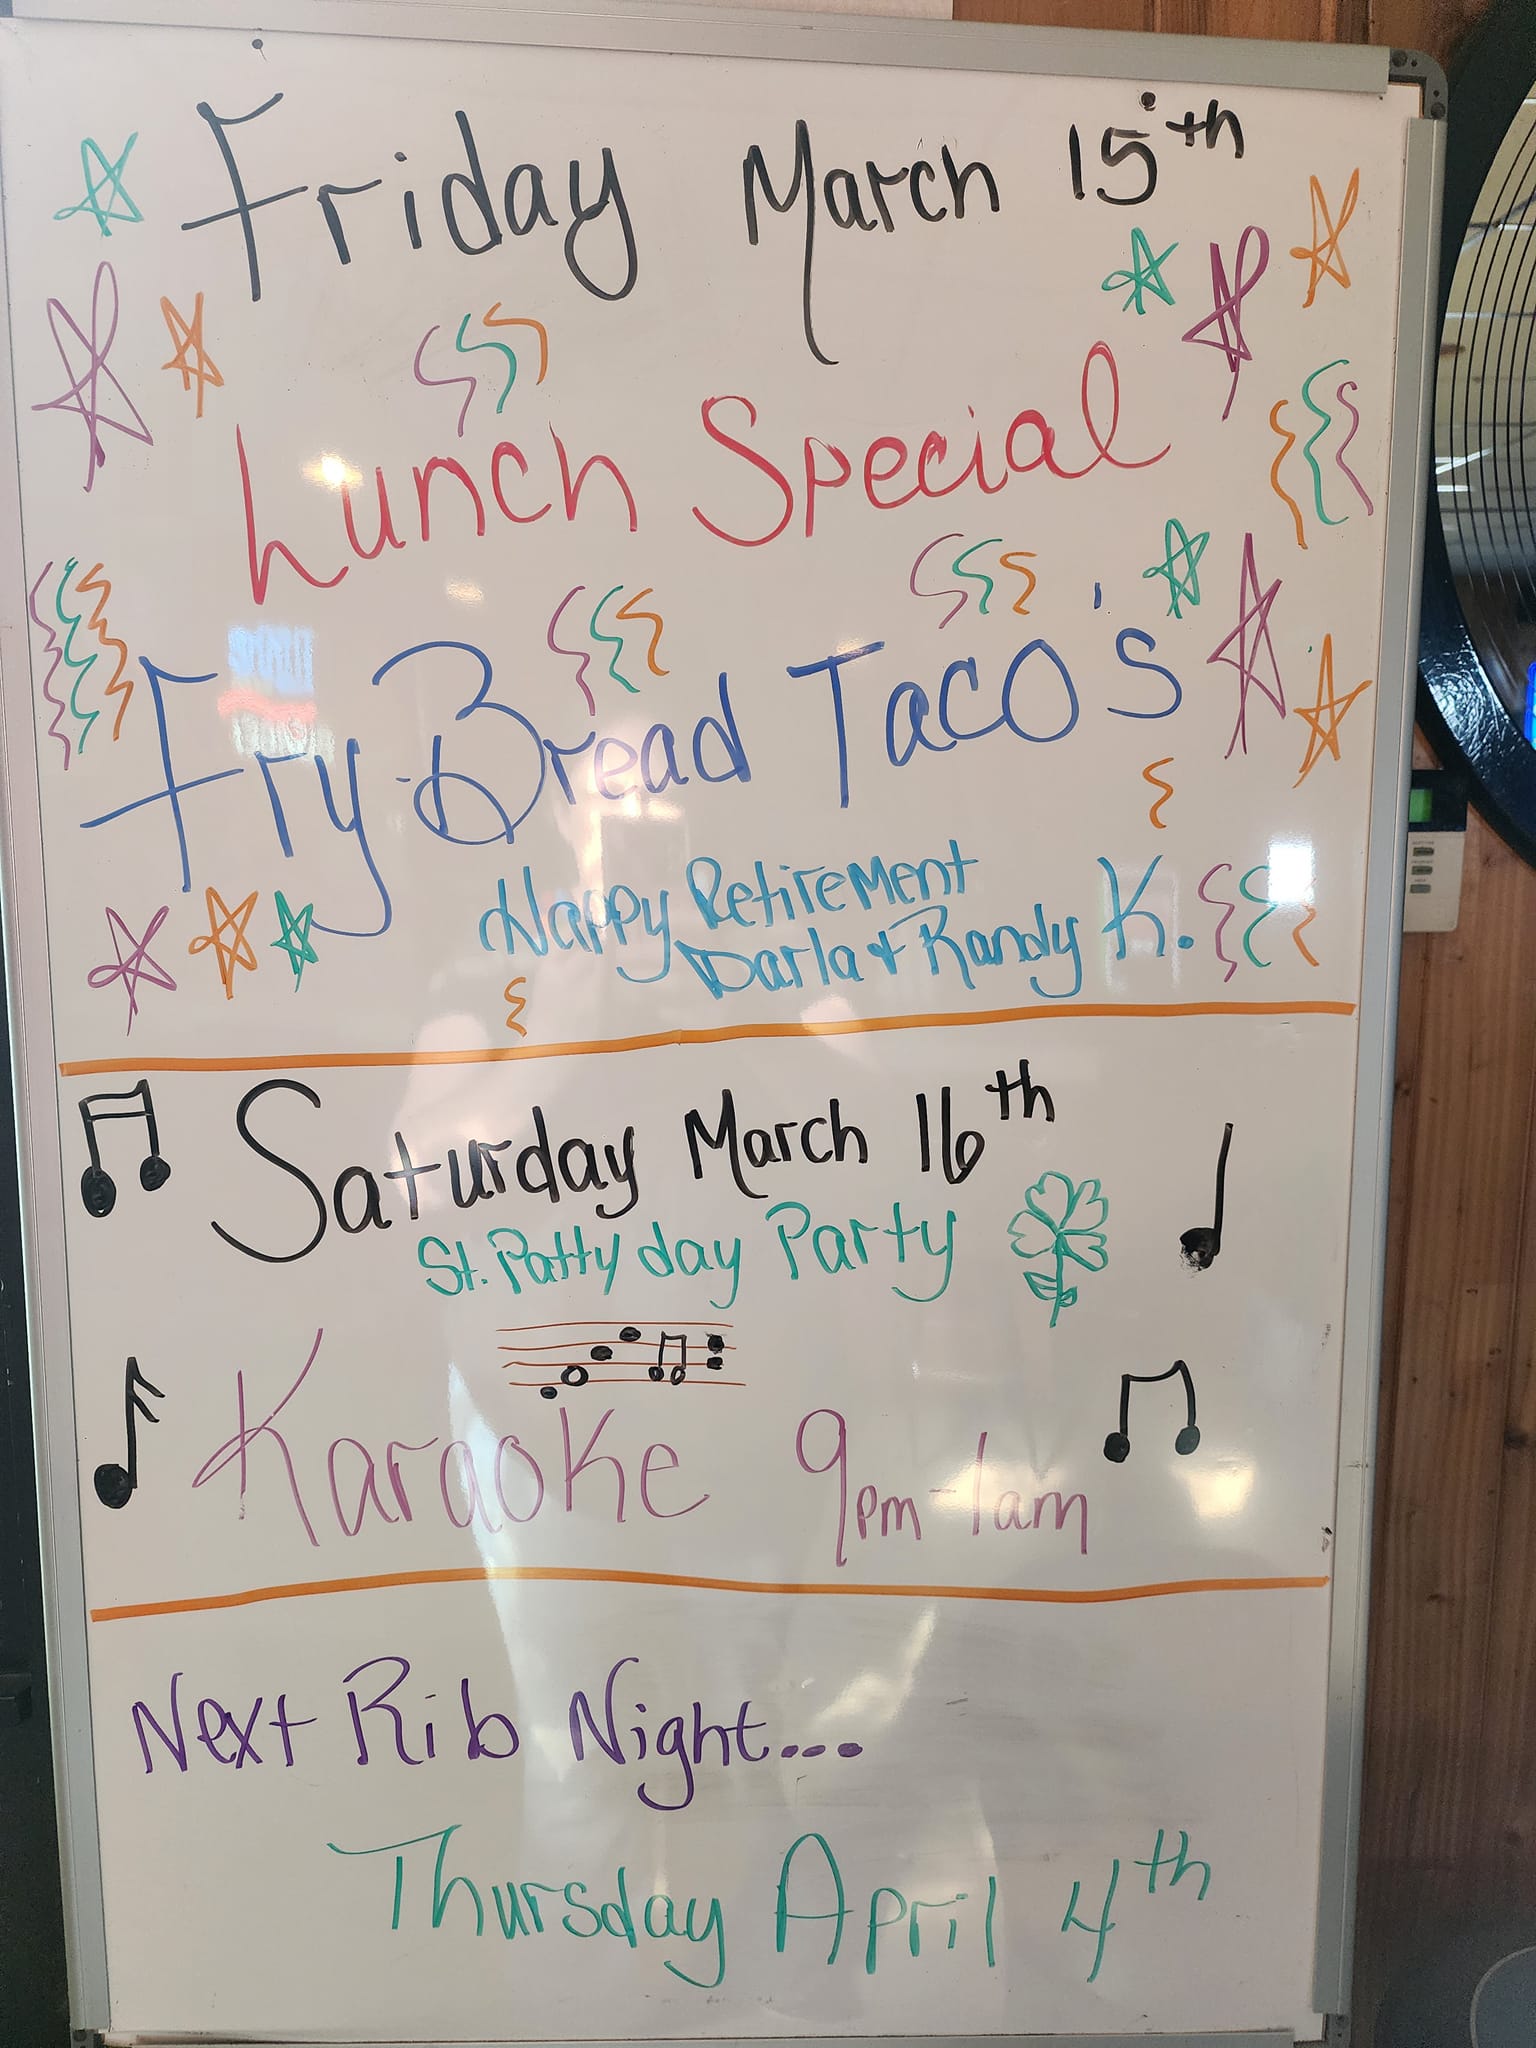 Friday March 15th
Lunch Special
Fry Bread Taco's
Happy Retirement
Darla + Randy K.
Saturday March 16th
St. Patty day Party
Karaoke 9pm-1am
Next Rib Night...
Thursday April 4th